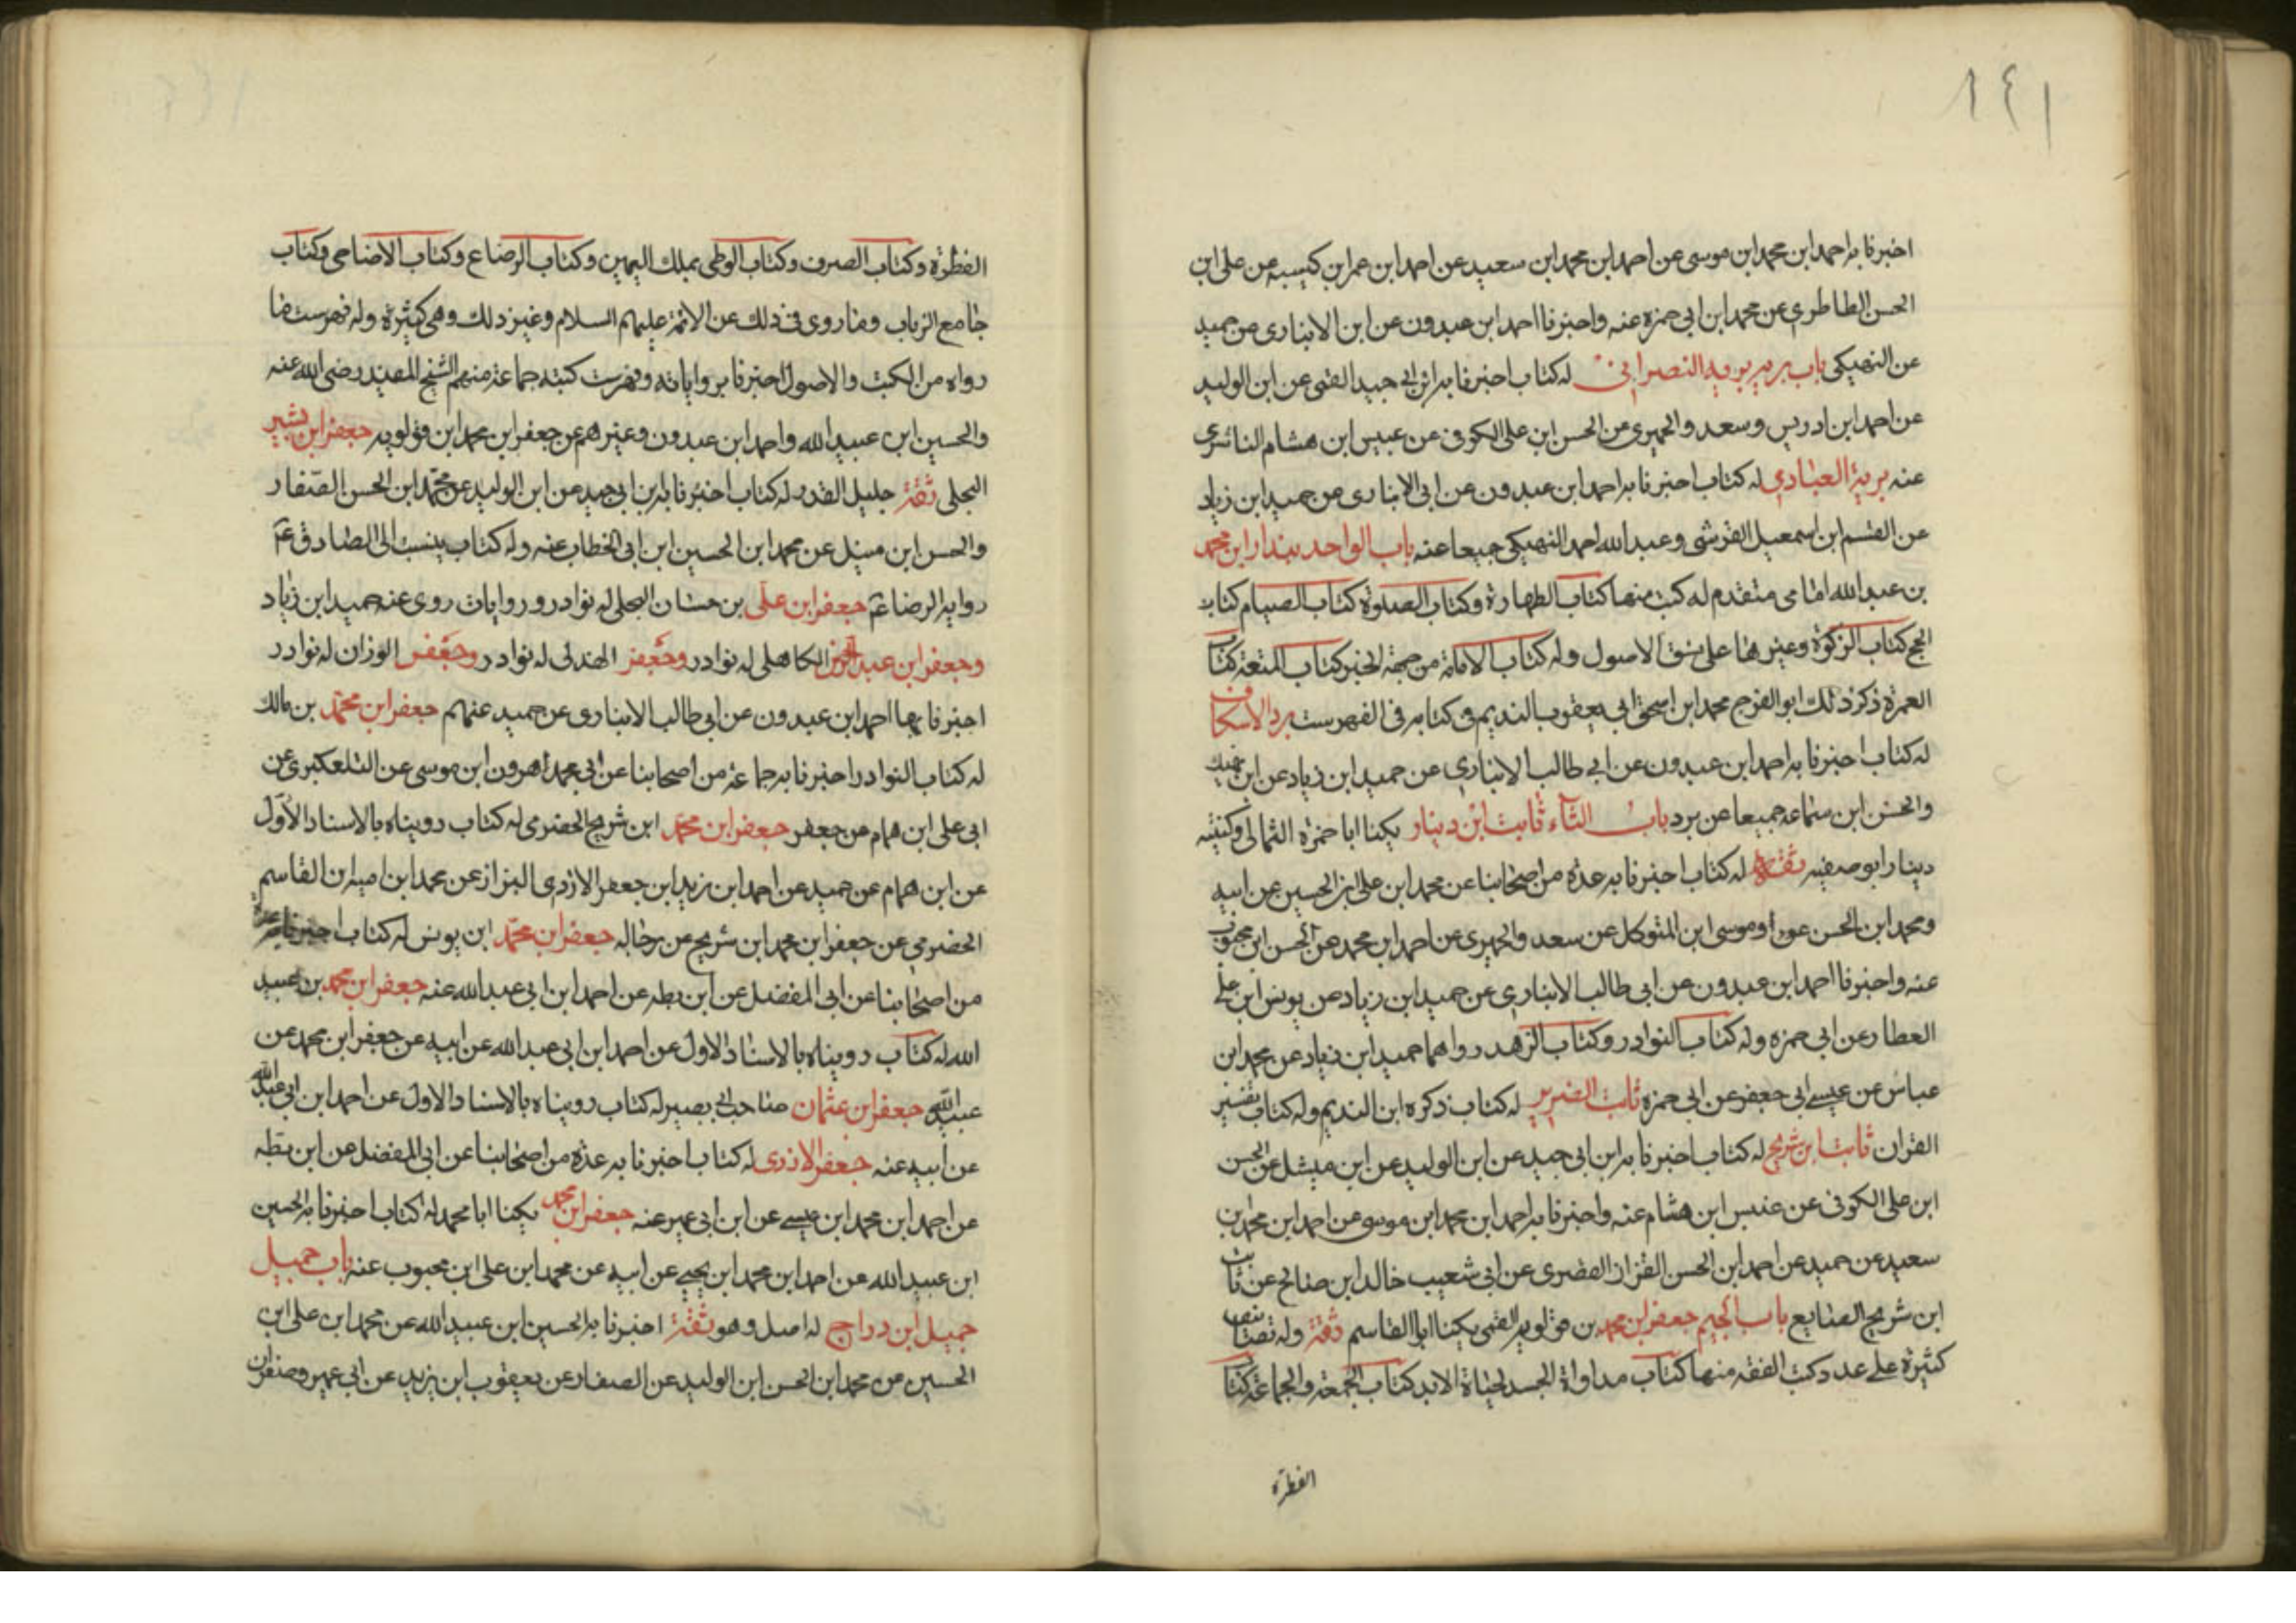 ١٤١
اخبرنا به احمد ابن محمد ابن موسى عن احمد ابن محمد ابن سعيد عن احمد ابن عمر ابن كيسبه عن على ابن
الحسن الطاطرى عن محمد ابن ابى حمزه عنه واخبرنا احمد ابن عبدون عن ابن الانبارى عن حميد
عن النهيكى باب بريه بريه النصرانى له كتاب اخبرنا به ابن ابى جيد القمى عن ابن الوليد
عن احمد ابن ادريس وسعد والحميرى عن الحسن ابن على الكوفى عن عبيس ابن هشام الناشرى
عنه برية العبادى له كتاب اخبرنا به احمد ابن عبدون عن ابى الانبارى عن حميد ابن زياد
عن القسم ابن اسمعيل القرشى وعبد الله احمد النهيكى جميعا عنه باب الواحد بندار ابن محمد
بن عبد الله امامى متقدم له كتب منها كتاب الطهارة وكتاب الصلوة كتاب الصيام كتاب
الحج كتاب الزكوة وغيرها على نسق الاصول وله كتاب الامامة من جهة الخبر كتاب المتعة كتاب
العمرة ذكر ذلك ابو الفرج محمد ابن اسحق ابى يعقوب النديم فى كتابه فى الفهرست برد الاسكاف
له كتاب اخبرنا به احمد ابن عبدون عن ابى طالب الانبارى عن حميد ابن زياد عن ابن نهيك
والحسن ابن سماعه جميعا عن برد باب الثاء ثابت ابن دينار يكنا ابا حمزه الثمالى وكنيته
دينار ابو صفيه ثقة له كتاب اخبرنا به عدة من اصحابنا عن محمد ابن على ابن الحسين عن ابيه
ومحمد ابن الحسن عن وموسى ابن المتوكل عن سعد والحميرى عن احمد ابن محمد عن الحسن ابن محبوب
عنه واخبرنا احمد ابن عبدون عن ابى طالب الانبارى عن حميد ابن زياد عن يونس ابن على
العطار عن ابى حمزه وله كتاب النوادر وكتاب الزهد رواهما حميد ابن زياد عن محمد ابن
عباس عن عيسى ابى جعفر عن ابى حمزه ثابت الضرير له كتاب ذكره ابن النديم وله كتاب تفسير
القران ثابت ابن شريح له كتاب اخبرنا به ابن ابى جيد عن ابن الوليد عن ابن ميثل عن الحسن
ابن على الكوفى عن عنبس ابن هشام عنه واخبرنا به احمد ابن محمد ابن موسى عن احمد ابن محمد بن
سعيد عن حميد عن احمد ابن الحسن القزاز البصرى عن ابى شعيب خالد ابن صالح عن ثابت
ابن شريح الصايغ باب الجيم جعفر ابن محمد بن قولويه القمى يكنا ابا القاسم ثقة وله تصانيف
كثيرة على عدد كتب الفقه منها كتاب مداواة الجسد لحياة الابد كتاب الجمعه والجماعة كتاب
الفطرة
الفطرة وكتاب الصرف وكتاب الوطى بملك اليمين وكتاب الرضاع وكتاب الاضاحى وكتاب
جامع الزباب وما روى فى ذلك عن الائمة عليهم السلام وغير ذلك وهى كثيرة وله فهرست ما
رواه من الكتب والاصول اخبرنا برواياته وفهرست كتبه جماعة منهم الشيخ المفيد رضى الله عنه
والحسين ابن عبيد الله واحمد ابن عبدون وغيرهم عن جعفر ابن محمد ابن قولويه جعفر ابن بشير
البجلى ثقة جليل القدر له كتاب اخبرنا به ابن ابى جيد عن ابن الوليد عن محمد ابن الحسن الصفار
والحسن ابن ميثل عن محمد ابن الحسين ابن ابى الخطاب عنه وله كتاب ينسب الى الصادق عم
رواية الرضا عم جعفر ابن على بن حسان البجلى له نوادر وروايات روى عنه حميد ابن زياد
وجعفر ابن عبد الرحمن الكاهلى له نوادر وجعفر الهذلى له نوادر وجعفر الوزان له نوادر
اخبرنا بها احمد ابن عبدون عن ابى طالب الانبارى عن حميد عنهم جعفر ابن محمد بن مالك
له كتاب النوادر اخبرنا به جماعة من اصحابنا عن ابى محمد هرون ابن موسى عن التلعكبرى عن
ابى على ابن همام عن جعفر جعفر ابن محمد ابن شريح الحضرمى له كتاب رويناه بالاسناد الاول
عن ابن همام عن حميد عن احمد ابن زيد ابن جعفر الازدى البزاز عن محمد ابن اميه ابن القاسم
الحضرمى عن جعفر ابن محمد ابن شريح عن رجاله جعفر ابن محمد ابن يونس له كتاب اخبرنا به عدة
من اصحابنا عن ابى المفضل عن ابن بطه عن احمد ابن ابى عبد الله عنه جعفر ابن محمد بن عبيد
الله له كتاب رويناه بالاسناد الاول عن احمد ابن ابى عبد الله عن ابيه عن جعفر ابن محمد عن
عبيد الله جعفر ابن عثمان صاحب ابى بصير له كتاب رويناه بالاسناد الاول عن احمد ابن ابى عبد الله
عن ابيه عنه جعفر الازدى له كتاب اخبرنا به عدة من اصحابنا عن ابى المفضل عن ابن بطه
عن احمد ابن محمد ابن عيسى عن ابن ابى عمير عنه جعفر ابن محمد يكنا ابا محمد له كتاب اخبرنا به الحسين
ابن عبيد الله عن احمد ابن محمد ابن يحيى عن ابيه عن محمد ابن على ابن محبوب عنه باب جميل
جميل ابن دراج له اصل وهو ثقة اخبرنا به الحسين ابن عبيد الله عن محمد ابن على ابن
الحسين عن محمد ابن الحسن ابن الوليد عن الصفار عن يعقوب ابن يزيد عن ابى عمير وصفوان